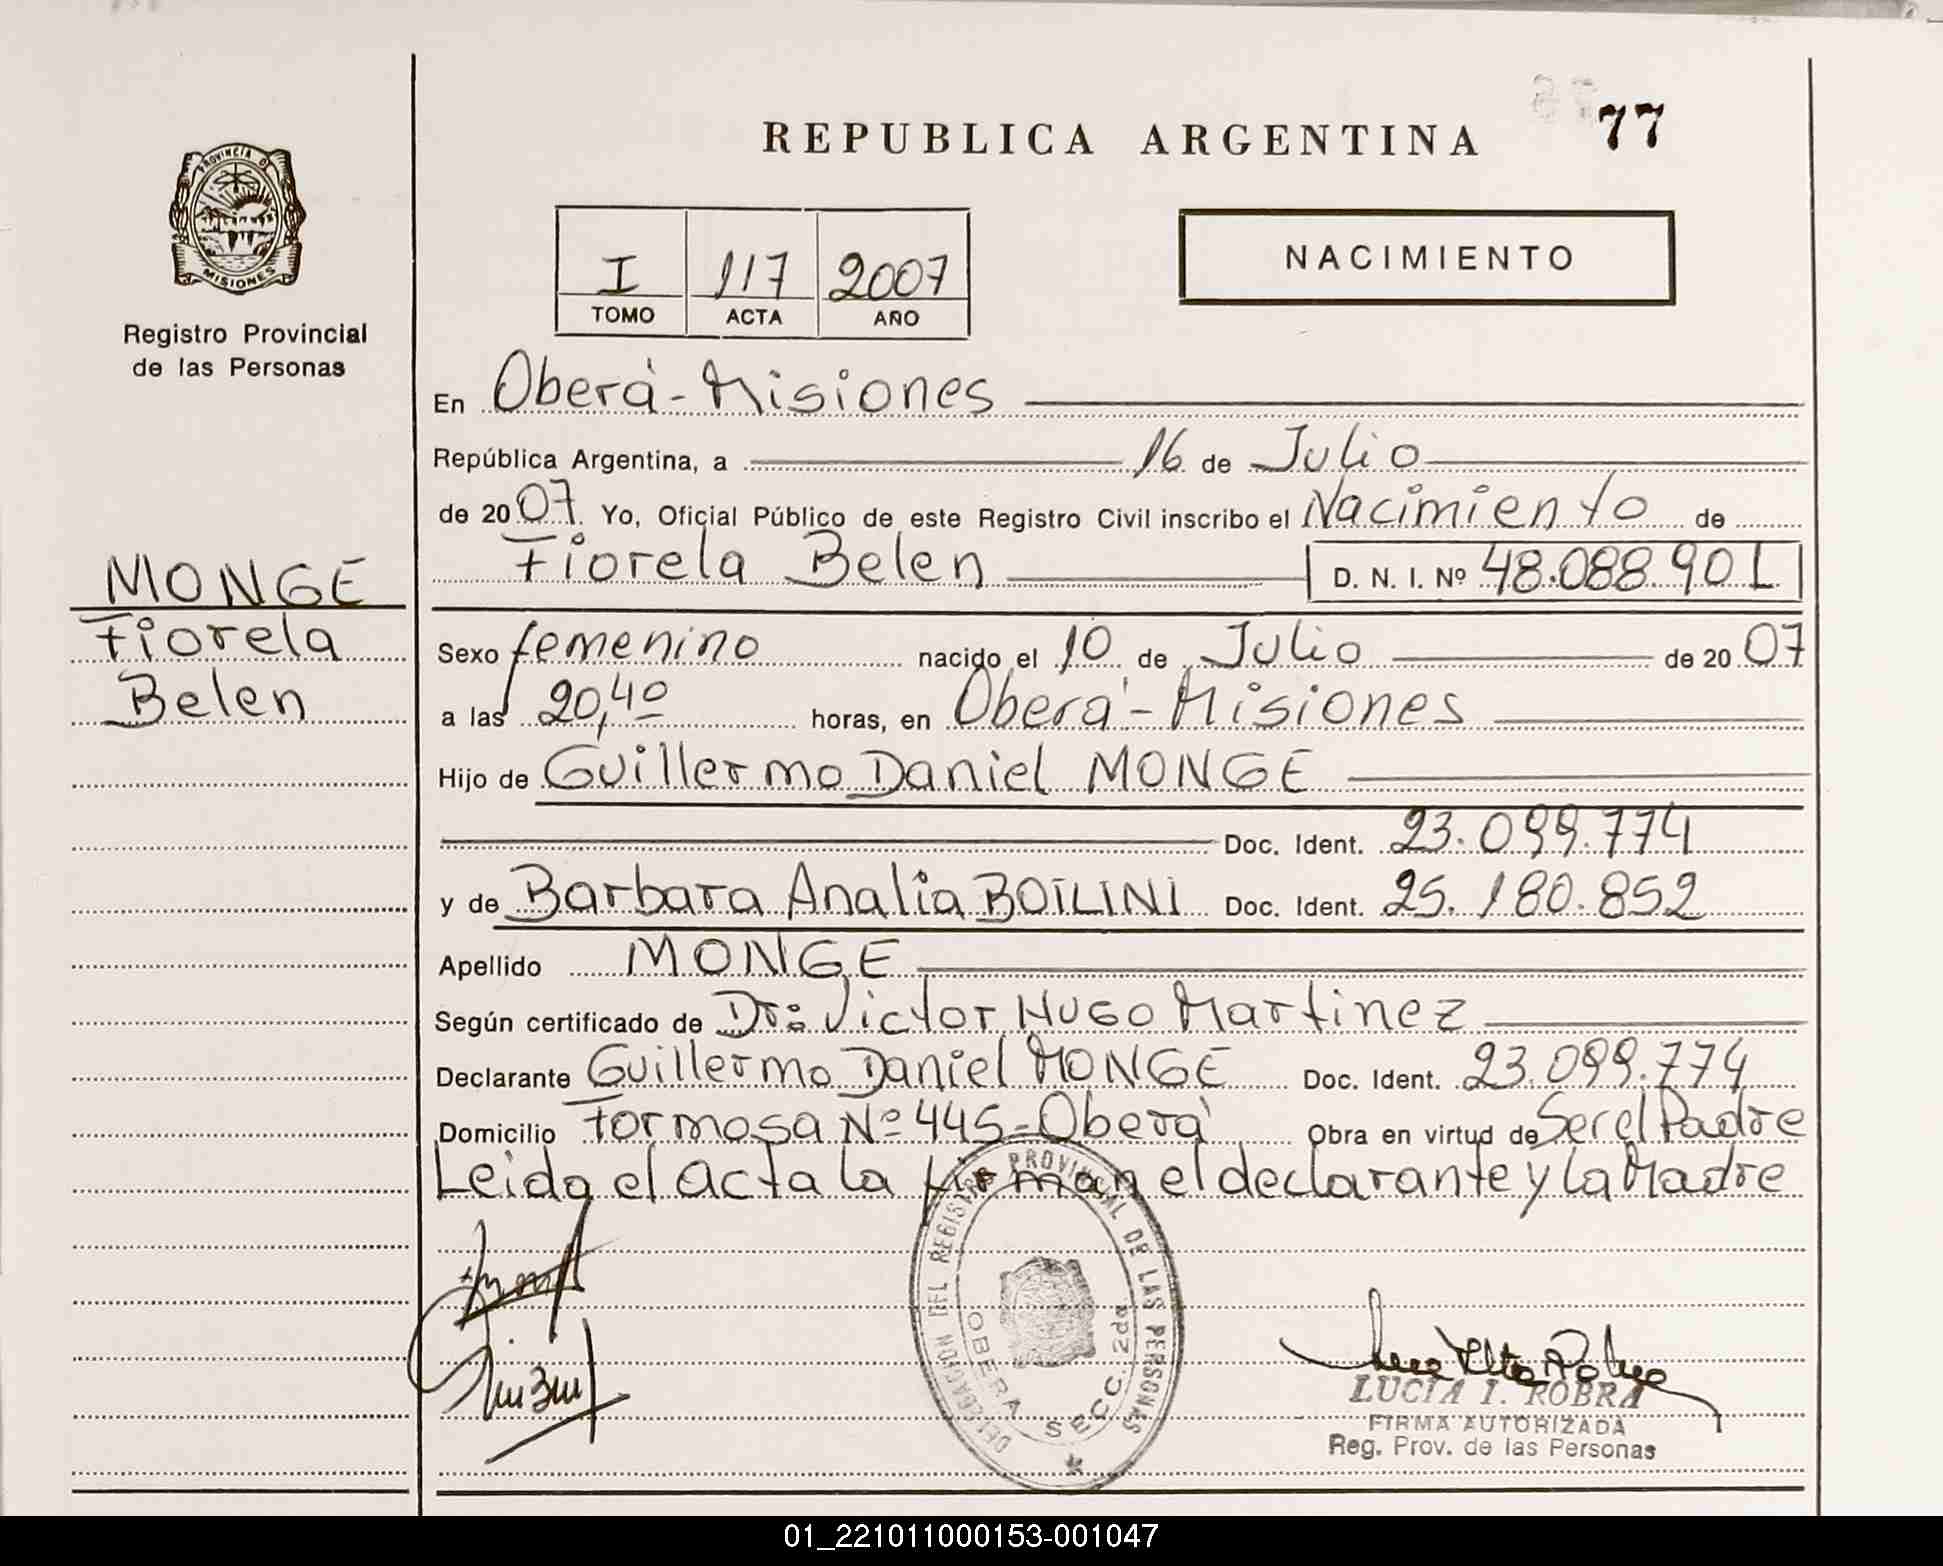 REPUBLICA ARGENTINA
77
PROVINCIA DE MISIONES
Registro Provincial
de las Personas
I 117 2007
TOMO ACTA AÑO
NACIMIENTO
En Oberá - Misiones
República Argentina, a 16 de Julio
de 2007. Yo, Oficial Público de este Registro Civil inscribo el Nacimiento de
Fiorela Belen D. N. I. Nº 48.088.901
MONGE
Fiorela
Belen
Sexo femenino nacido el 10 de Julio de 2007
a las 20,40 horas, en Oberá - Misiones
Hijo de Guillermo Daniel MONGE
Doc. Ident. 23.099.774
y de Barbara Analia BOILINI Doc. Ident. 25.180.852
Apellido MONGE
Según certificado de Dr: Victor HUGO Martinez
Declarante Guillermo Daniel MONGE Doc. Ident. 23.099.774
Domicilio Formosa Nº 445 - Oberá Obra en virtud de Ser el Padre
Leida el acta la firman el declarante y la Madre
DELEGACION DEL REGISTRO PROVINCIAL DE LAS PERSONAS
OBERA SECC. 2da
LUCIA I. ROBRA
FIRMA AUTORIZADA
Reg. Prov. de las Personas
01_221011000153-001047